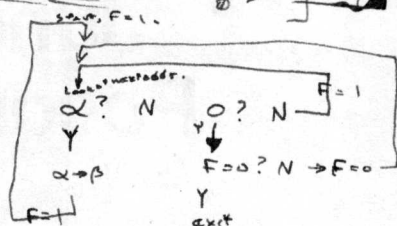 start, F=1.
Look at next addr.
α? N O? N F=1
Y Y
α→β F=0? N →F=0
Y
F=1 exit